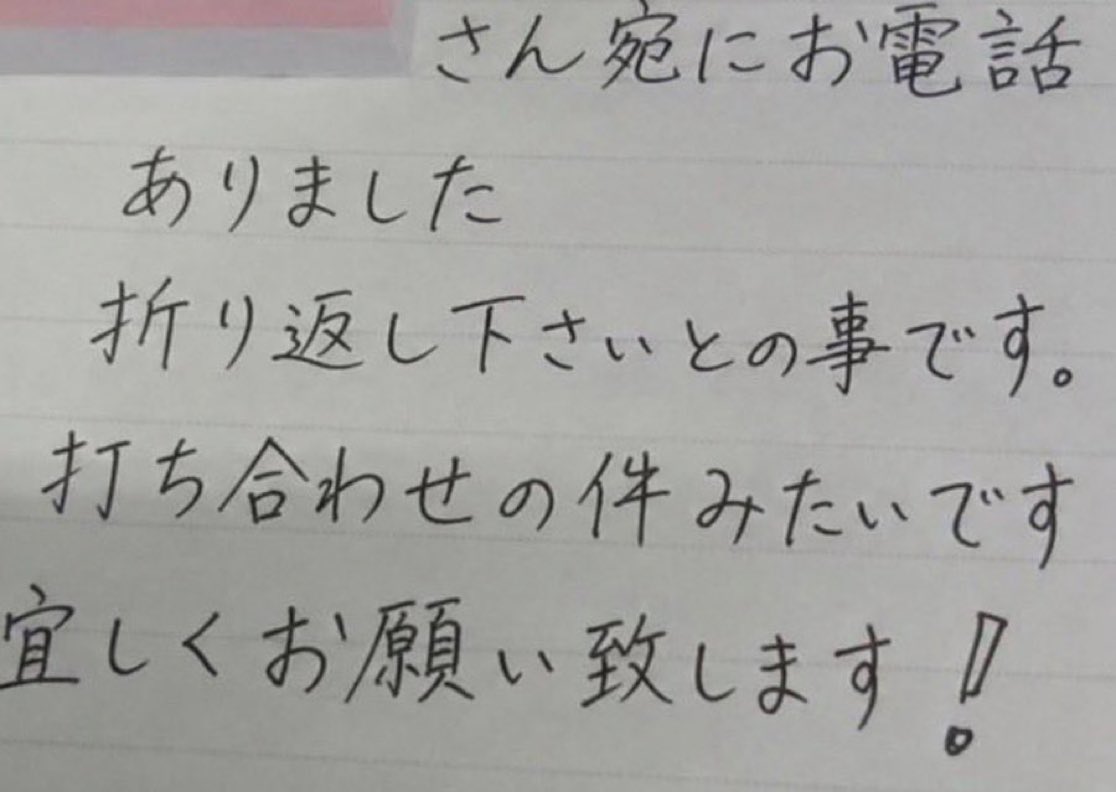 さん宛にお電話
ありました
折り返し下さいとの事です。
打ち合わせの件みたいです
宜しくお願い致します!